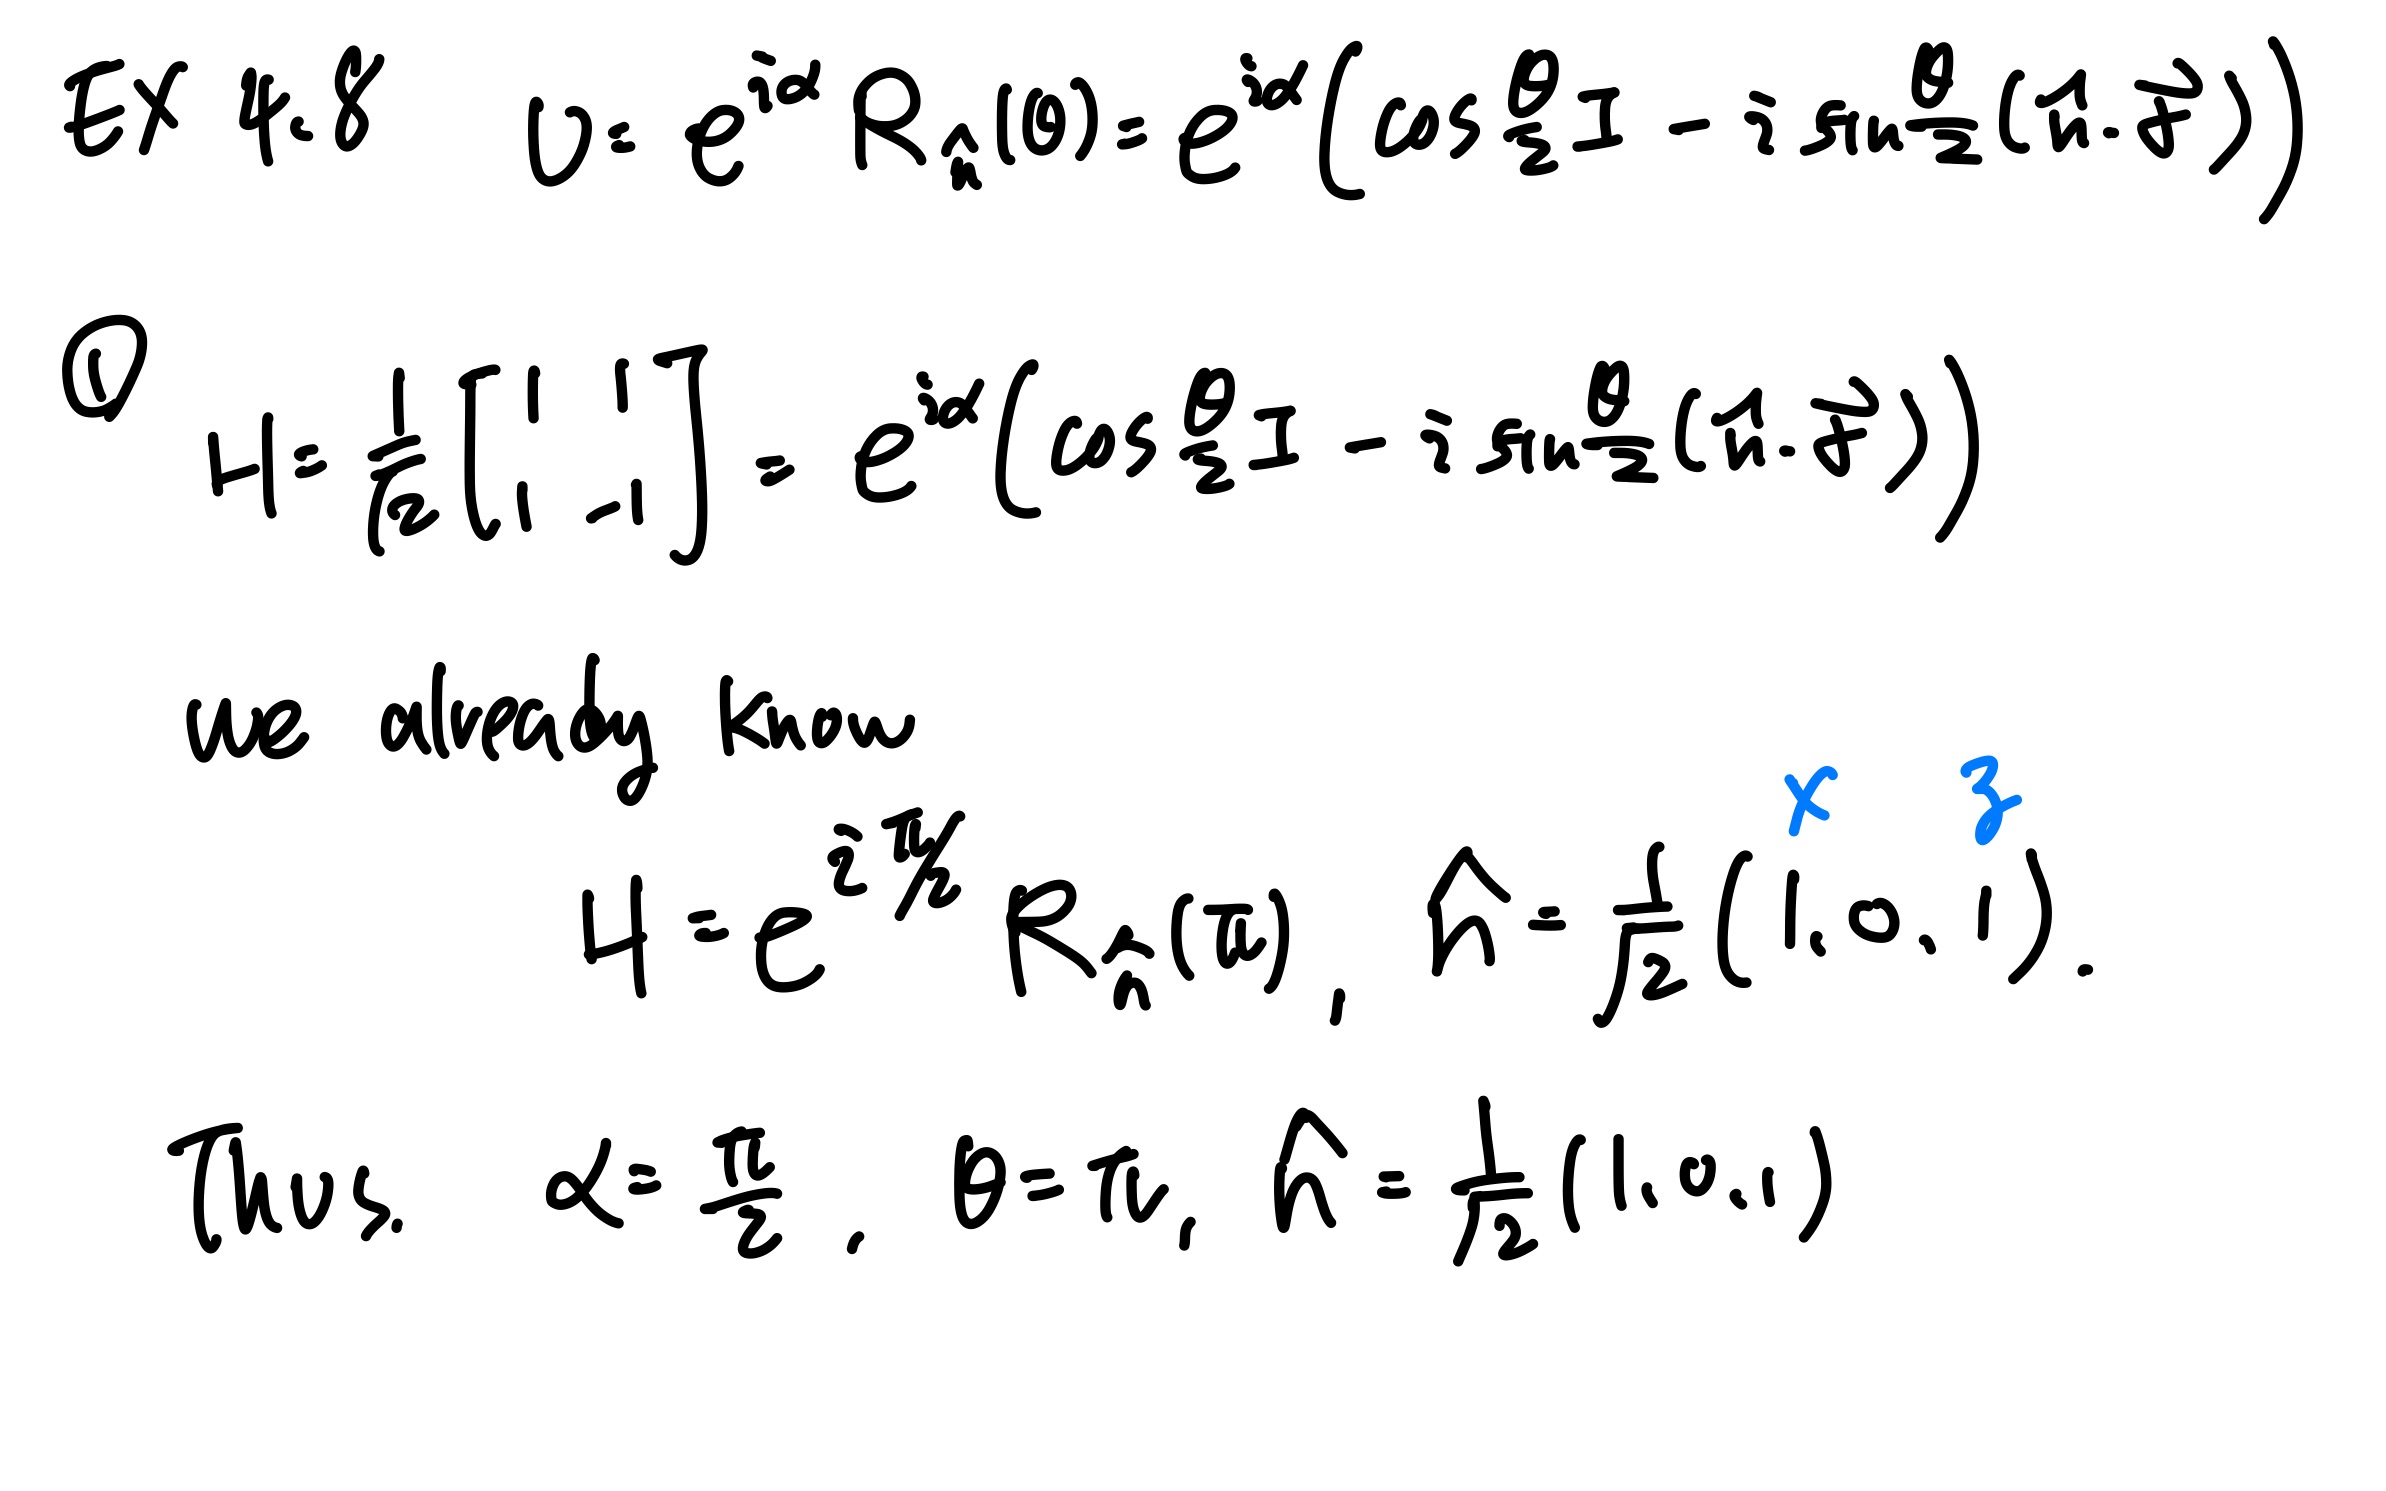 EX 4.8 U = e^{iα} R_{n̂}(θ) = e^{iα} (cos θ/2 I − i sin θ/2 (n̂·σ⃗))
① H = 1/√2 [1 1; 1 −1] = e^{iα} (cos θ/2 I − i sin θ/2 (n̂·σ⃗))
we already know
x z
H = e^{iπ/2} R_{n̂}(π), n̂ = 1/√2 (1, 0, 1).
Thus, α = π/2, θ = π, n̂ = 1/√2 (1, 0, 1)